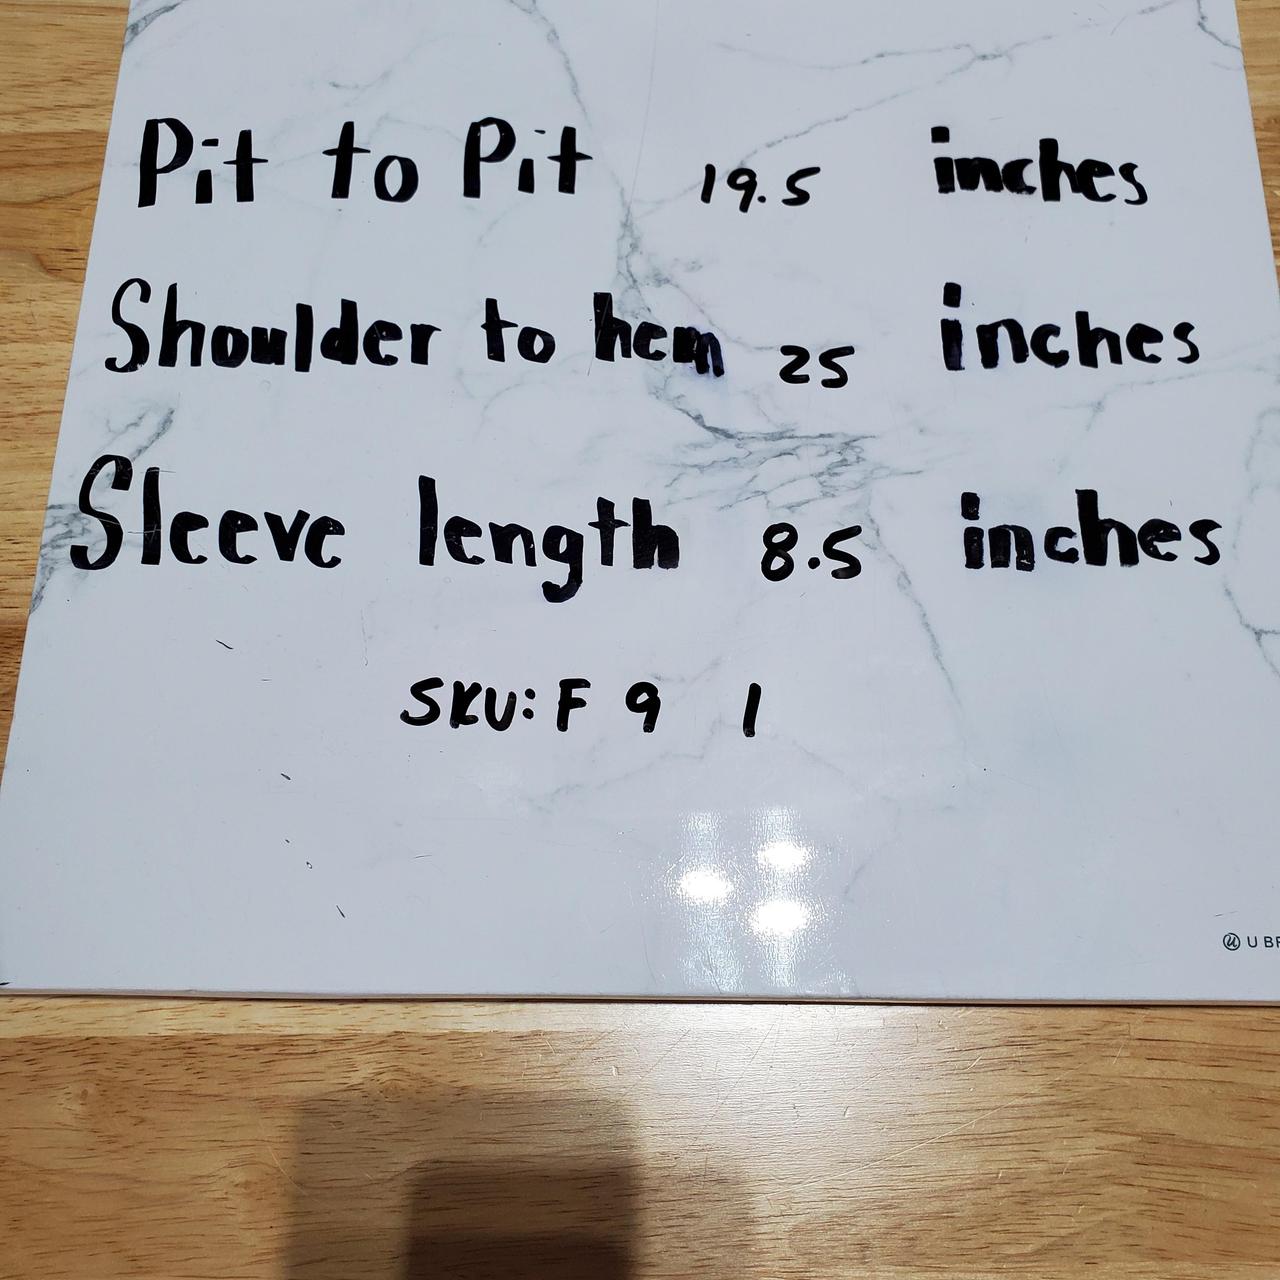 Pit to Pit 19.5 inches
Shoulder to hem 25 inches
Sleeve length 8.5 inches
SKU: F 9 1
U